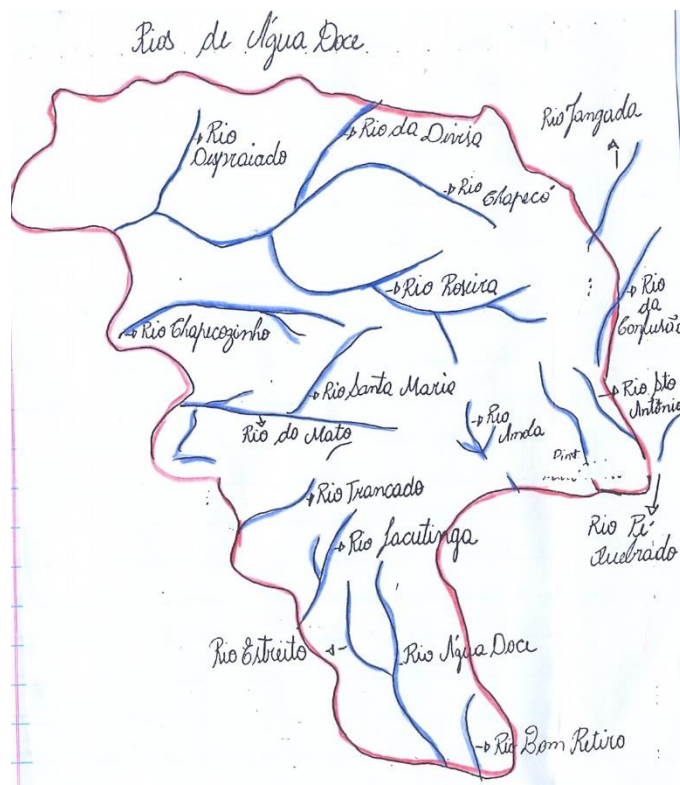 Rios de Água Doce
Rio Jangada
Rio
Despraiado
Rio da
Divisa
Rio
Chapecó
Rio Roseira
Rio
da
Confusão
Rio Chapecozinho
Rio Santa Maria
Rio Sto
Antônio
Rio do Mato
Rio
Anda
Rio Trancado
Rio
Quebrado
Rio Jacutinga
Rio Estreito
Rio Água Doce
Rio Bom Retiro